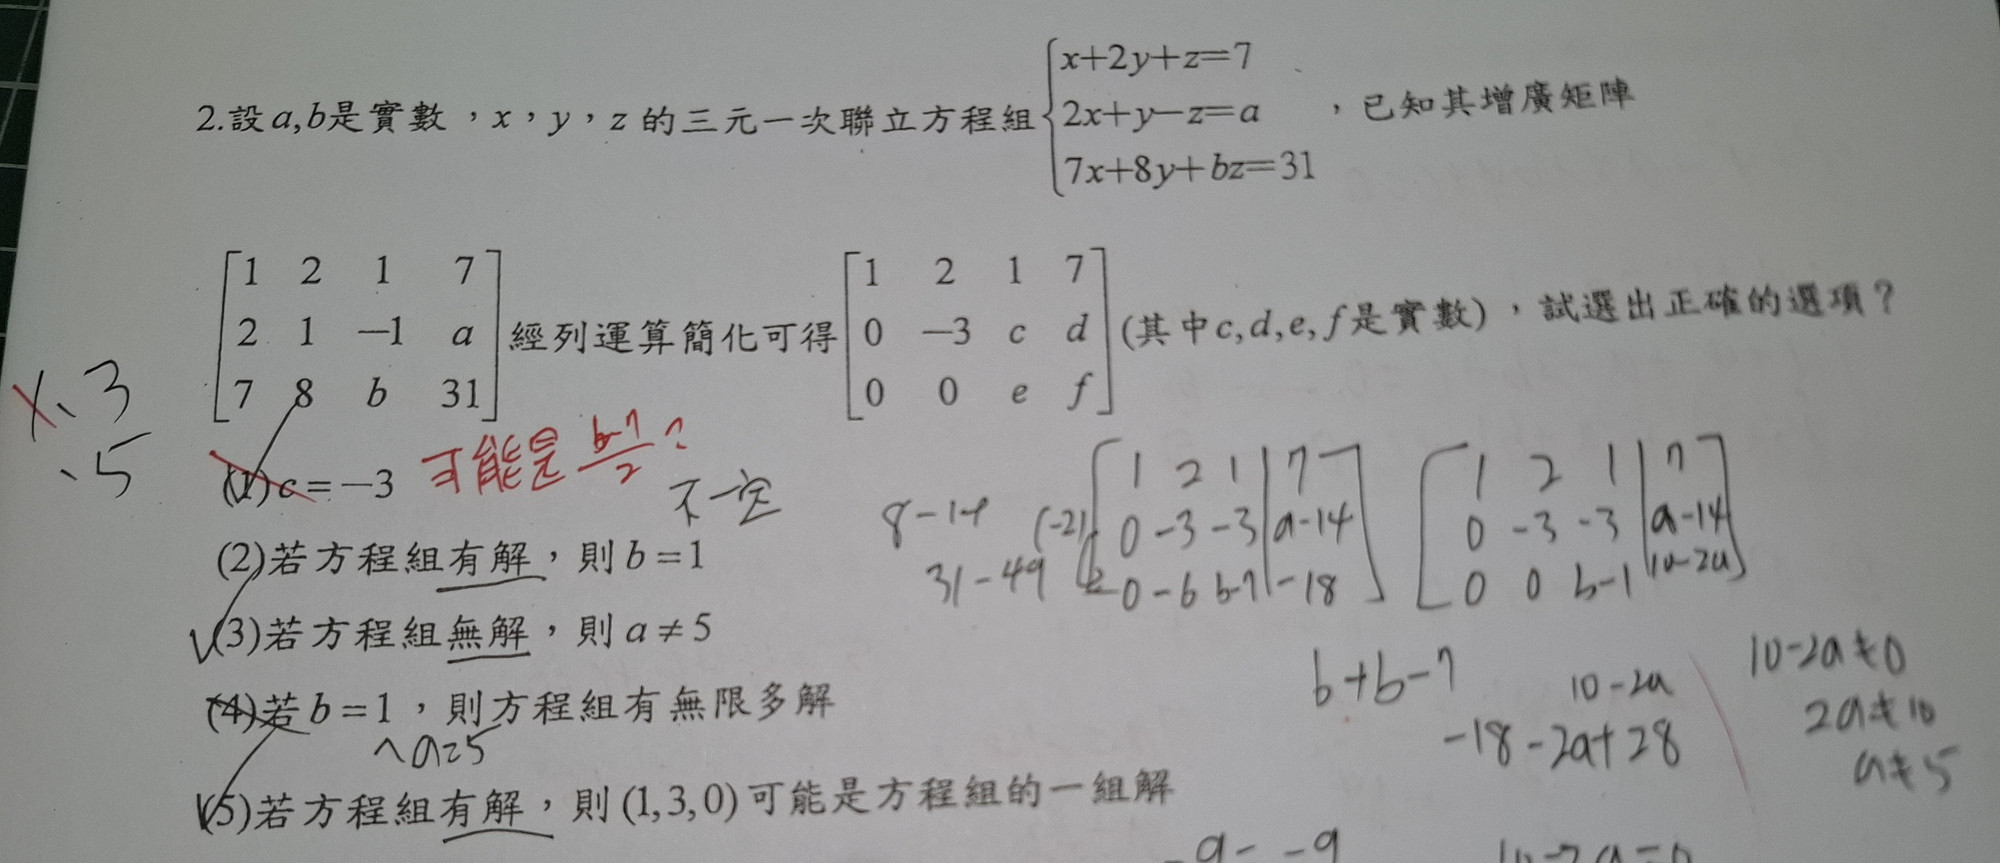 2.設a,b是實數，x，y，z的三元一次聯立方程組{x+2y+z=7
2x+y−z=a
7x+8y+bz=31
，已知其增廣矩陣
[1 2 1 7
2 1 −1 a
7 8 b 31]
經列運算簡化可得
[1 2 1 7
0 −3 c d
0 0 e f]
(其中c,d,e,f是實數)，試選出正確的選項？
1、3
、5
(1)c=−3
可能是 b-7/2 ?
不一定
(2)若方程組有解，則b=1
(3)若方程組無解，則a≠5
(4)若b=1，則方程組有無限多解
^a=5
(5)若方程組有解，則(1,3,0)可能是方程組的一組解
8-14
31-49
(-2)
[1 2 1|7
0 -3 -3|a-14
0 -6 b-7|-18]
[1 2 1|7
0 -3 -3|a-14
0 0 b-1|10-2a]
6+b-7
10-2a
-18-2a+28
10-2a≠0
2a≠10
a≠5
10-2a=0